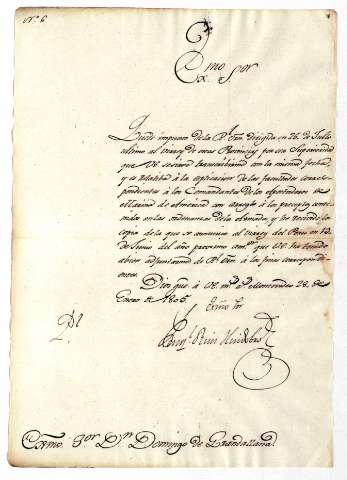 N.º 6
Exmo Sor
Quedo impuesto de la Rl Orn dirigida en 26 de Julio
ultimo al Virrey de estas Provincias por esa Superioridad
que VE se sirvió transcribirme con la misma fecha
y relativa à la aplicacion de las facultades corres-
pondientes à los Comandantes de los Apostaderos de
Marina de America con arreglo à los preceptos conte-
nidos en las ordenanzas de la Armada; y he recivido
copia de la que se comunico al Virrey del Peru en
de Junio del año proximo que VE ha tenido
à bien adjuntarme de Rl Orn à los fines correspondi-
entes.
Dios gue à VE ms as Montevideo 28 de
Enero de 1805.
Exmo Sor
Ruiz Huidobro
Exmo. Sor Dn Domingo de Grandallana.